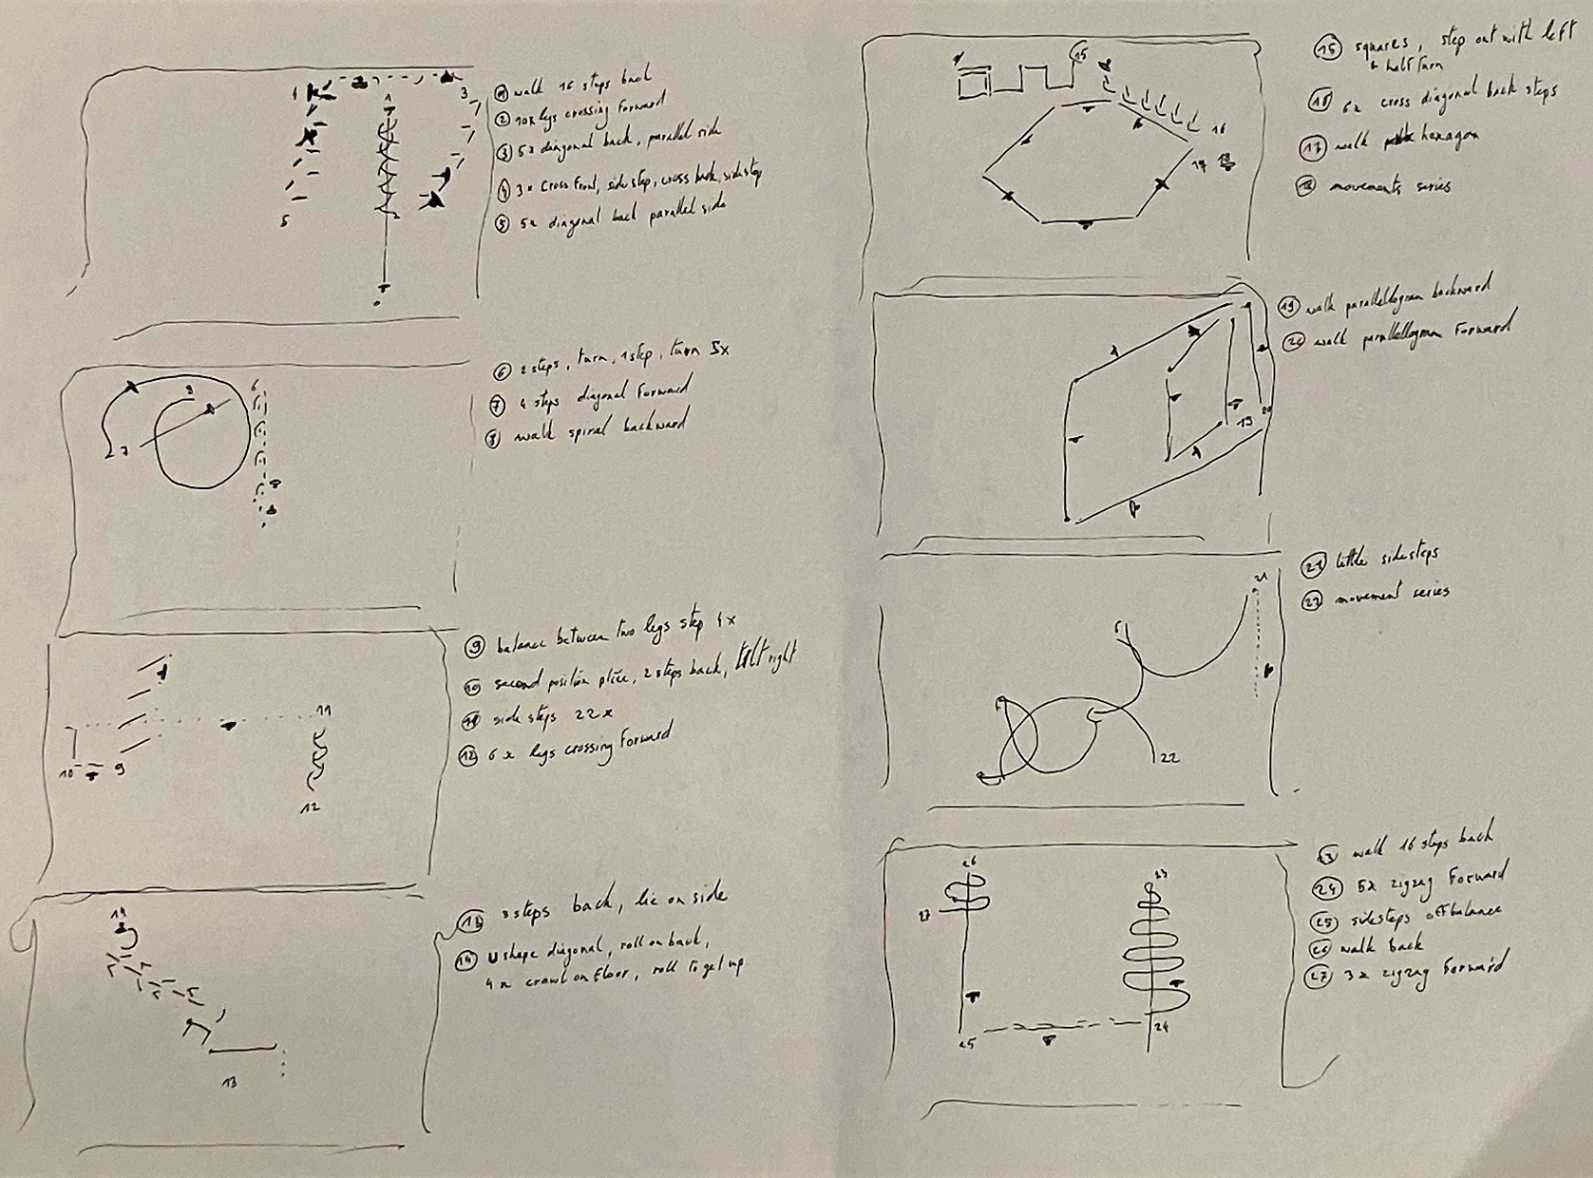 ① walk 16 steps back
② 10x legs crossing forward
③ 5x diagonal back, parallel side
④ 3x cross front, side step, cross back, sidestep
⑤ 5x diagonal back parallel side
1
1
3
2
5
0
⑥ 2 steps, turn, 1 step, turn 5x
⑦ 4 steps diagonal forward
⑧ walk spiral backward
6
8
7
⑨ balance between two legs step 4x
⑩ second position pliée, 2 steps back, tilt right
⑪ side steps 22x
⑫ 6x legs crossing forward
11
10
9
12
⑬ 3 steps back, lie on side
⑭ U shape diagonal, roll on back,
4x crawl on floor, roll to get up
14
13
⑮ squares, step out with left
& half turn
⑯ 6x cross diagonal back steps
⑰ walk hexagon
⑱ movements series
15
16
17 18
⑲ walk parallellogram backward
⑳ walk parallellogram forward
20
19
㉑ little sidesteps
㉒ movement series
21
22
㉓ walk 16 steps back
㉔ 5x zigzag forward
㉕ sidesteps offbalance
㉖ walk back
㉗ 3x zigzag forward
26
23
27
25
24